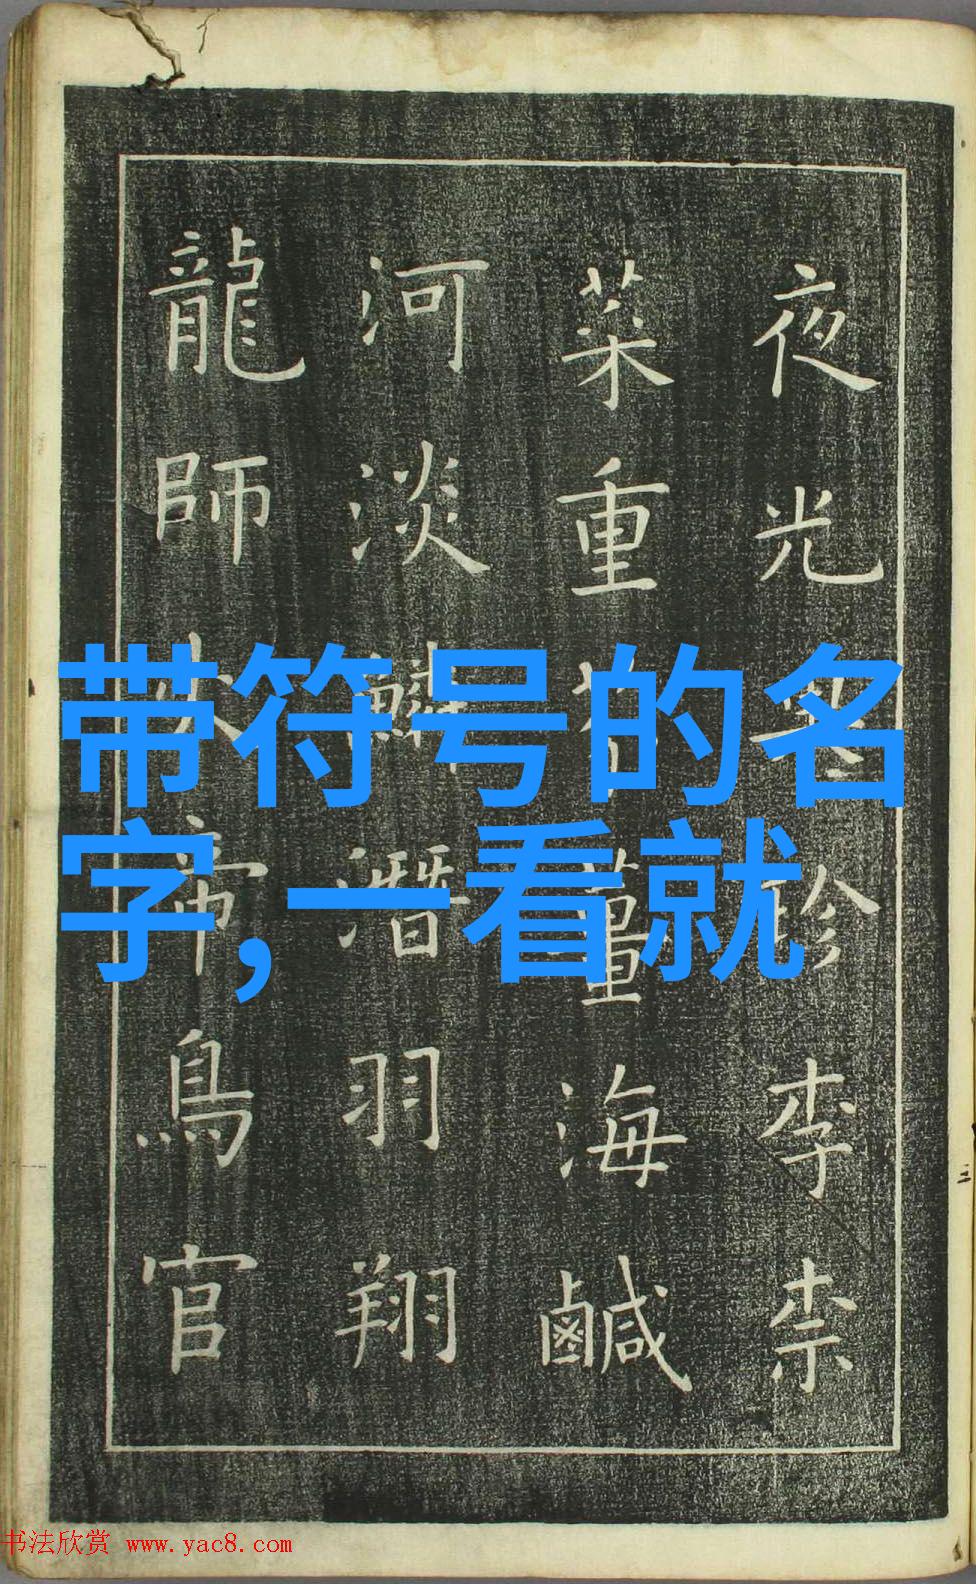 夜光珍李柰
菜重薑海鹹
河淡鱗潛羽翔
龍師火帝鳥官
带符号的名
字,一看就
书法欣赏 www.yac8.com